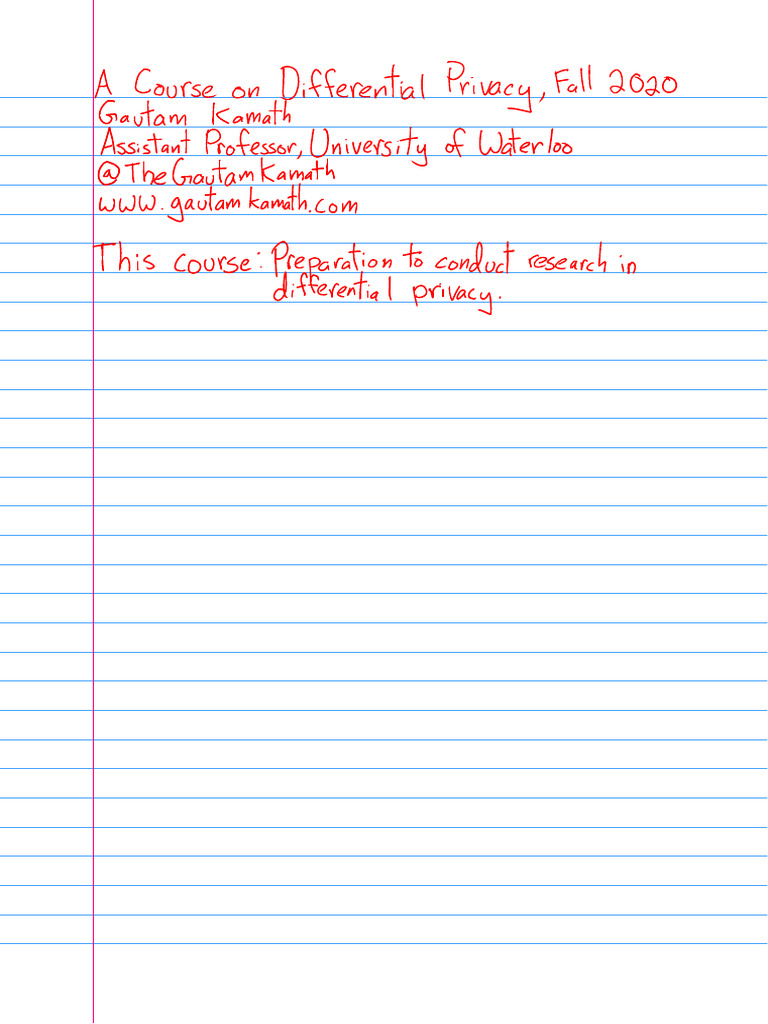 A Course on Differential Privacy, Fall 2020
Gautam Kamath
Assistant Professor, University of Waterloo
@TheGautamKamath
www.gautamkamath.com
This course: Preparation to conduct research in
differential privacy.